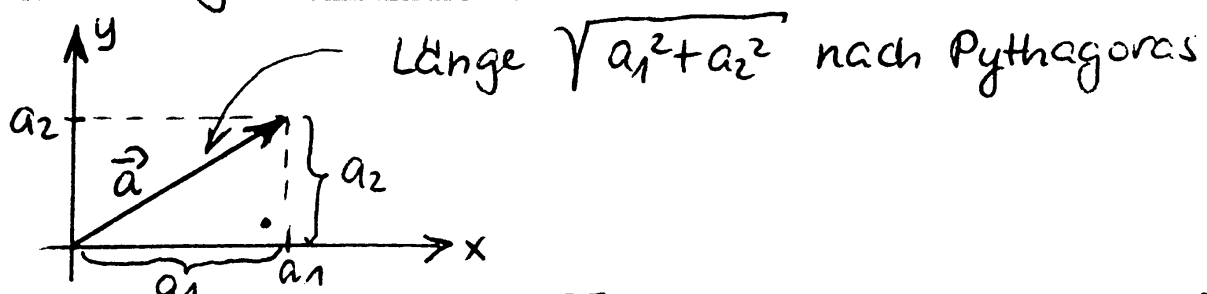 y
Länge √(a₁²+a₂²) nach Pythagoras
a₂
a⃗
a₂
x
a₁
a₁